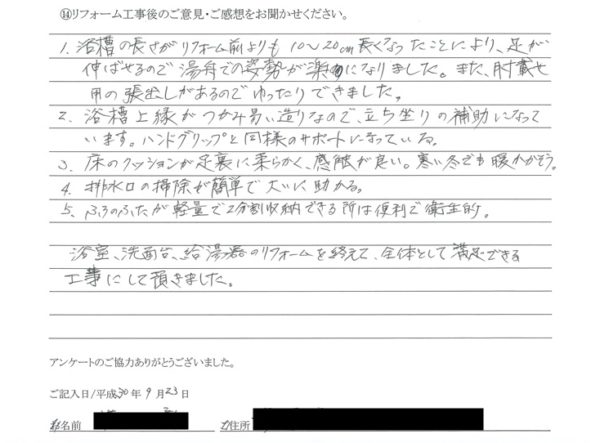 ⑭リフォーム工事後のご意見・ご感想をお聞かせください。
1. 浴槽の長さがリフォーム前よりも10～20cm長くなったことにより、足が
伸ばせるので湯舟での姿勢が楽になりました。また、肘載せ
用の張出しがあるのでゆったりできました。
2. 浴槽上縁がつかみ易い造りなので、立ち坐りの補助になって
います。ハンドグリップと同様のサポートになっている。
3. 床のクッションが足裏に柔らかく、感触が良い。寒い冬でも暖かかそう。
4. 排水口の掃除が簡単で大いに助かる。
5. ふろのふたが軽量で2分割収納できる所は便利で衛生的。
浴室、洗面台、給湯器のリフォームを終えて、全体として満足できる
工事にして頂きました。
アンケートのご協力ありがとうございました。
ご記入日/平成30年9月23日
名前 住所